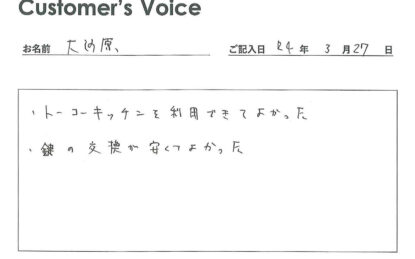 Customer's Voice
お名前 大河原、 ご記入日 R4 年 3 月 27 日
・トーコーキッチンを利用できてよかった
・鍵の交換が安くてよかった